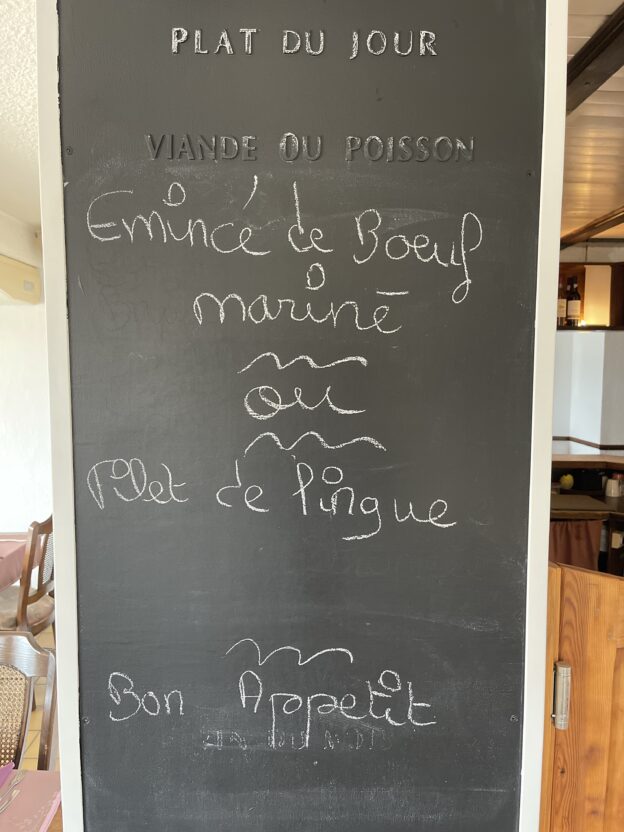 PLAT DU JOUR
VIANDE OU POISSON
Emincé de Boeuf
mariné
ou
Filet de lingue
Bon Appetit